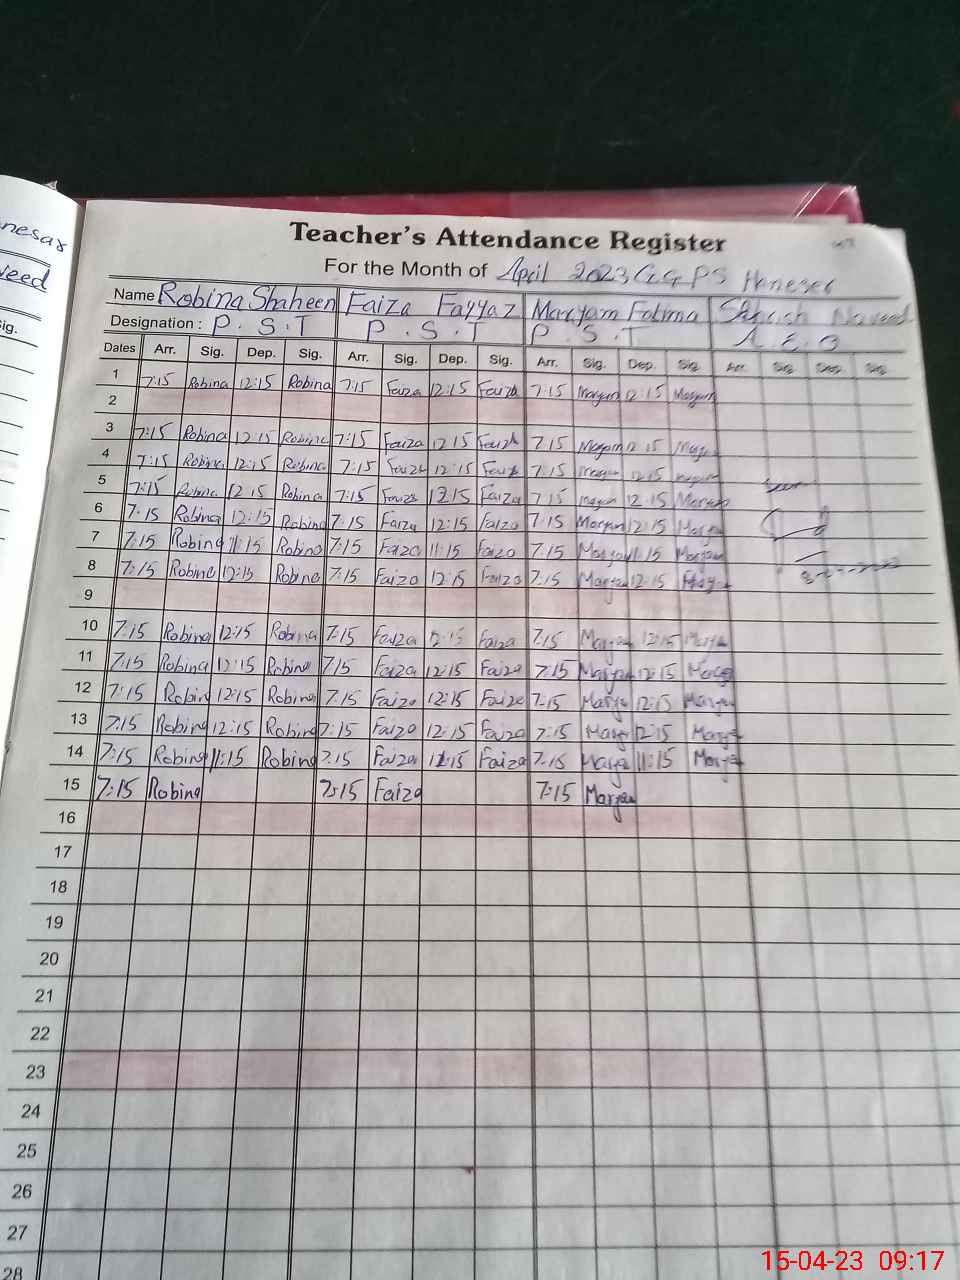 nesar
veed
ig.
Teacher's Attendance Register
For the Month of April 2023 G.G.P.S Hanesar
Name Robina Shaheen Faiza Fayyaz Maryam Fatima
Designation : P.S.T P.S.T P.S.T A.E.O
Dates Arr. Sig. Dep. Sig. Arr. Sig. Dep. Sig. Arr. Sig. Dep. Sig. Arr. Sig. Dep. Sig.
1 7:15 Robina 12:15 Robina 7:15 Faiza 12:15 Faiza 7:15 Maryam 12:15 Maryam
2
3 7:15 Robina 12:15 Robina 7:15 Faiza 12:15 Faiza 7:15 Maryam 12:15 Maryam
4 7:15 Robina 12:15 Robina 7:15 Faiza 12:15 Faiza 7:15 Maryam 12:15 Maryam
5 7:15 Robina 12:15 Robina 7:15 Faiza 12:15 Faiza 7:15 Maryam 12:15 Maryam
6 7:15 Robina 12:15 Robina 7:15 Faiza 12:15 Faiza 7:15 Maryam 12:15 Maryam
7 7:15 Robina 11:15 Robina 7:15 Faiza 11:15 Faiza 7:15 Maryam 11:15 Maryam
8 7:15 Robina 12:15 Robina 7:15 Faiza 12:15 Faiza 7:15 Maryam 12:15 Maryam
9
10 7:15 Robina 12:15 Robina 7:15 Faiza 12:15 Faiza 7:15 Maryam 12:15 Maryam
11 7:15 Robina 12:15 Robina 7:15 Faiza 12:15 Faiza 7:15 Maryam 12:15 Maryam
12 7:15 Robina 12:15 Robina 7:15 Faiza 12:15 Faiza 7:15 Maryam 12:15 Maryam
13 7:15 Robina 12:15 Robina 7:15 Faiza 12:15 Faiza 7:15 Maryam 12:15 Maryam
14 7:15 Robina 11:15 Robina 7:15 Faiza 11:15 Faiza 7:15 Maryam 11:15 Maryam
15 7:15 Robina 7:15 Faiza 7:15 Maryam
16
17
18
19
20
21
22
23
24
25
26
27
28
15-04-23 09:17